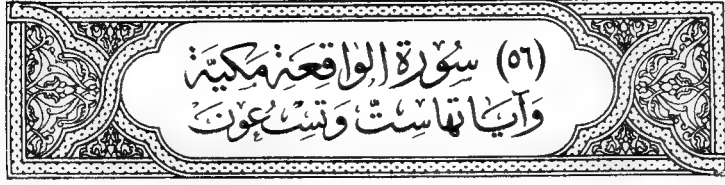 (٥٦) سُوْرَةُ الوَاقِعَةِ مَكِيَّة
وَآيَاتهَا سِتٌّ وَتِسْعُونَ